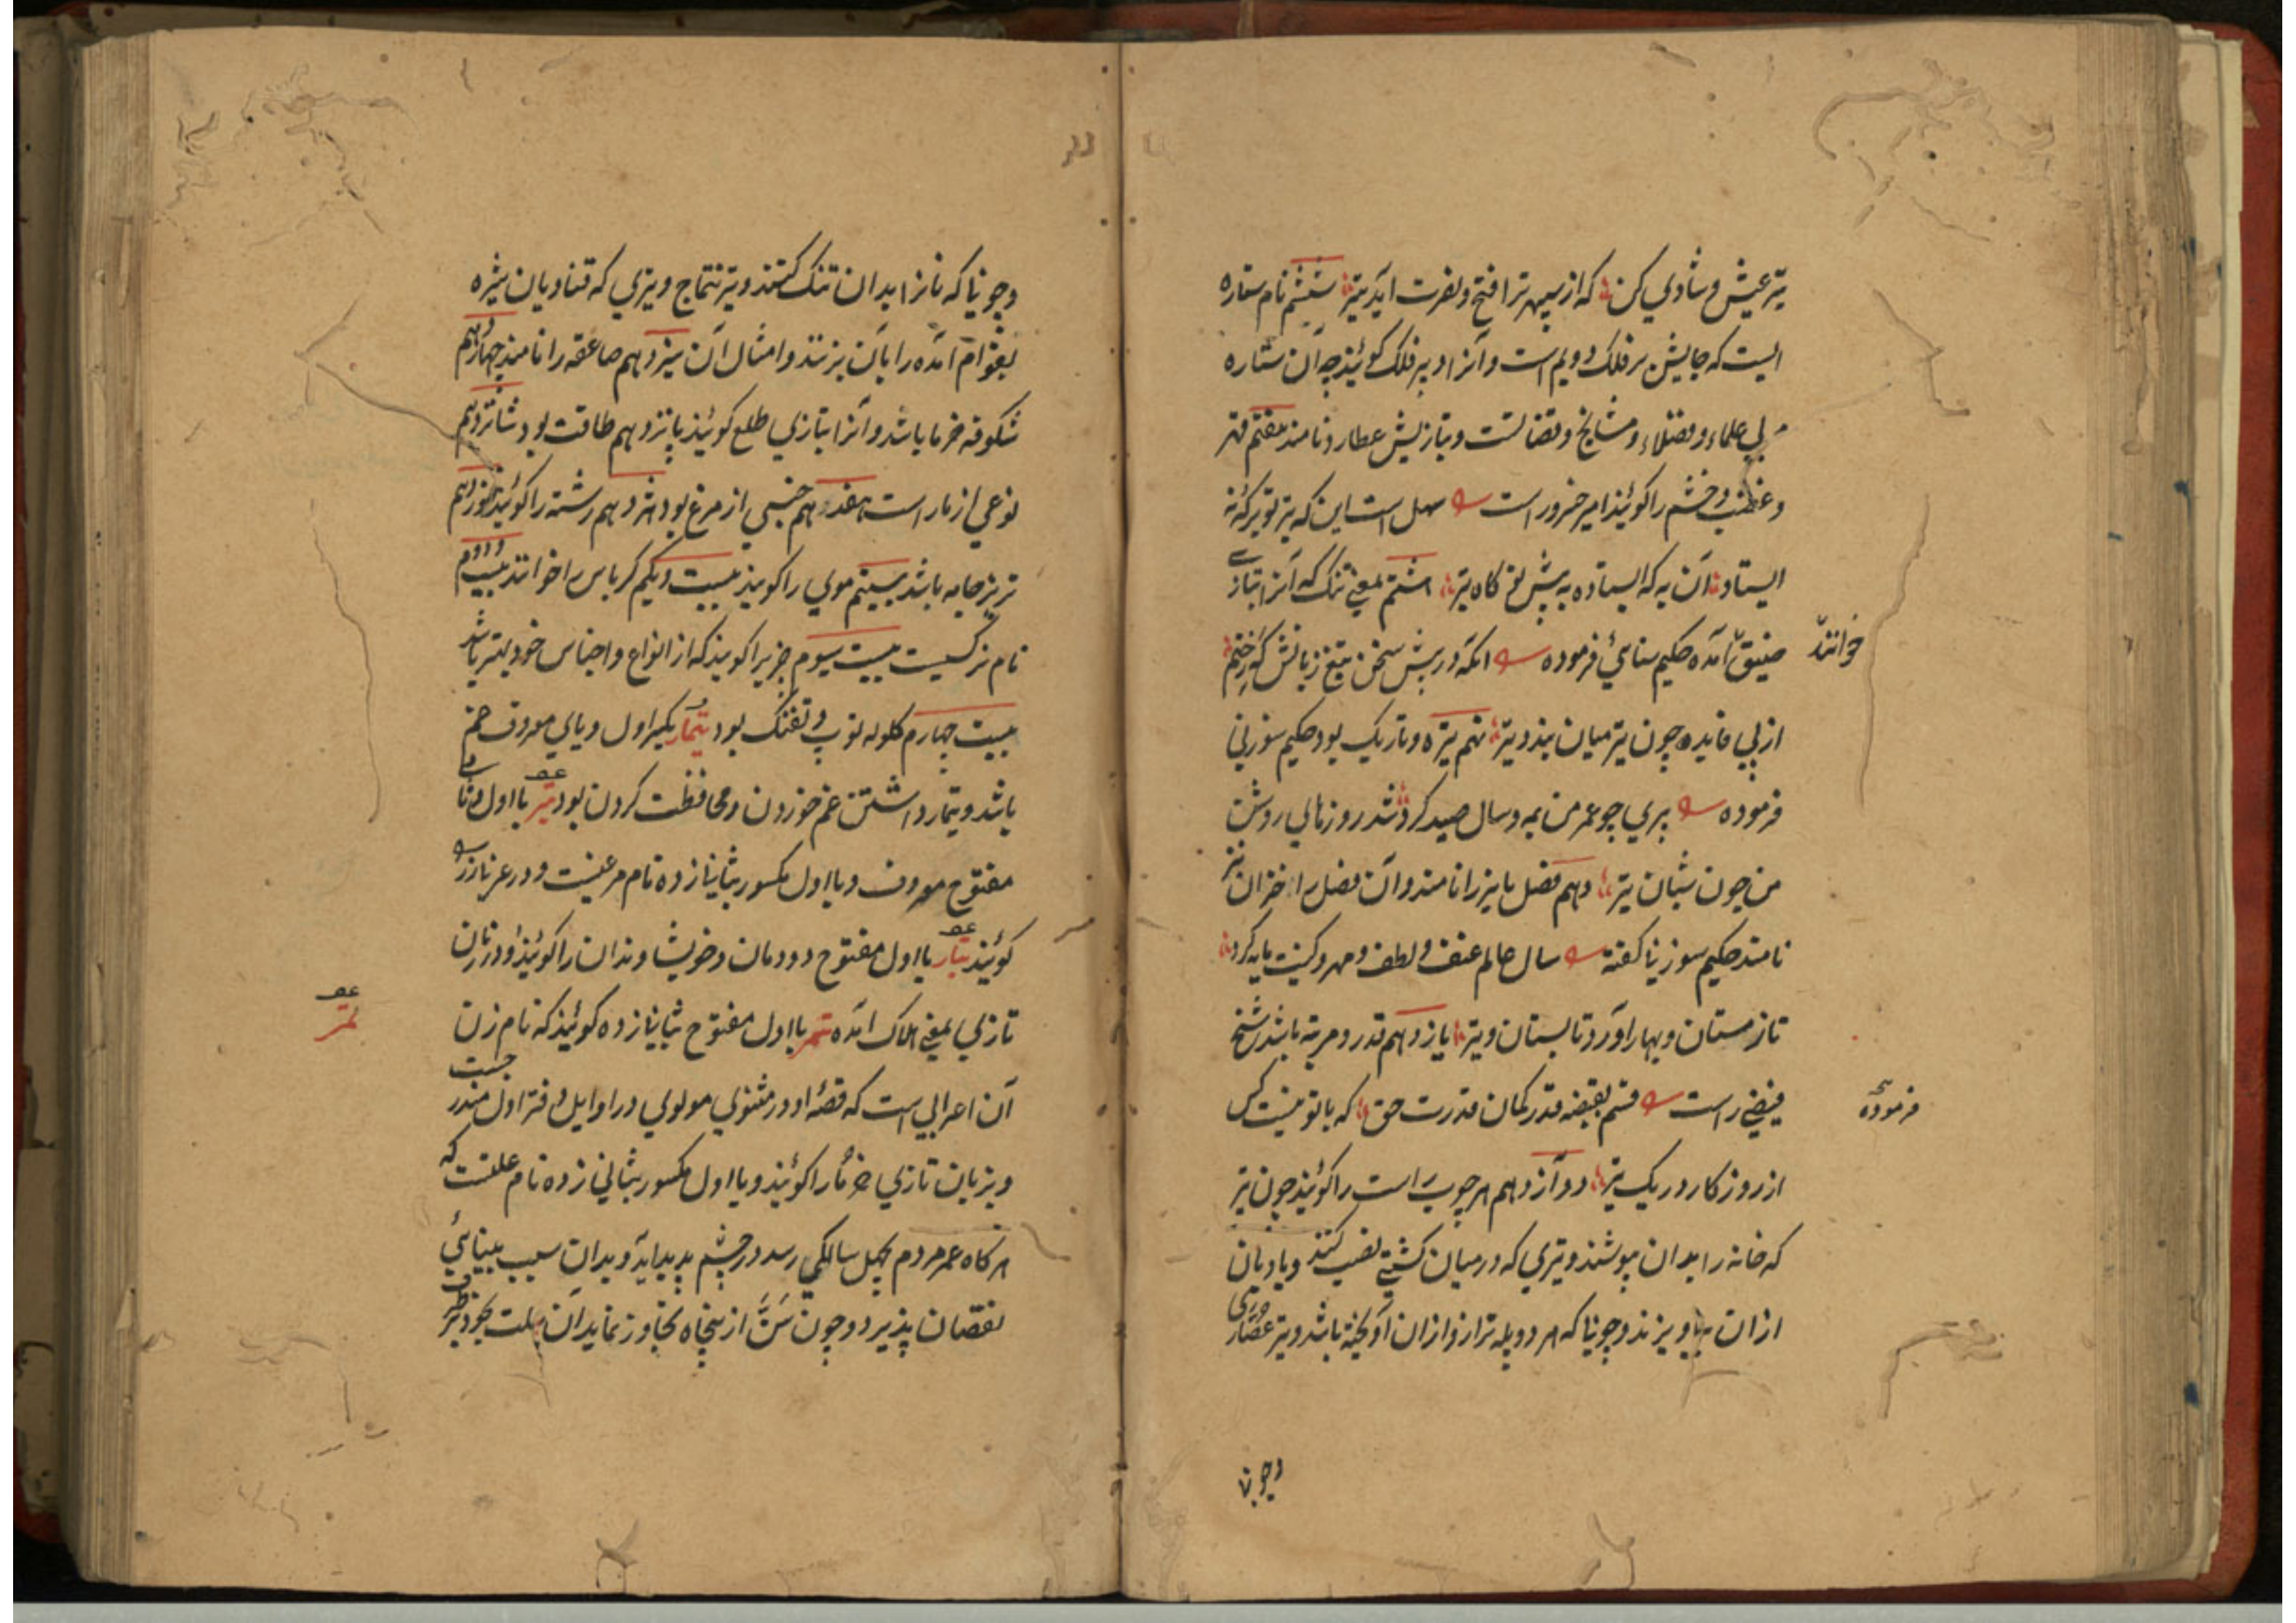 تیر عیش و شادی کن که از سپهر ترا فتح و نصرت آید تیر ششم نام ستاره
ایست که جایش بر فلک دویم است و آنرا دبیر فلک گویند چه آن ستاره
علماء و فضلاء و مشایخ و قضاتست و بتازیش عطارد نامند هفتم قهر
و غضب و خشم را گویند امیر خسرو راست سهل است این که تیر تو بر گرنه
ایستاد آن به که ایستاده به پیش تو گاه تیر هشتم بمعنی تنگ که آنرا بتازی
خوانند
ضیق آمده حکیم سنائی فرموده آنکه در پیش سخن تیغ زبانش گه زخم
از پی فایده چون تیر میان بندد تیر نهم تیره و تاریک بود حکیم سوزنی
فرموده پیری چو عمر من به مه و سال صید کرد شد روزهای روشن
من چون شبان تیر دهم فصل پاییز را نامند و آن فصل را خزان نیز
نامند حکیم سوزنی گفته سال عالم عنف و لطف و مهر و کینت مایه کرد
تا زمستان و بهار آورد و تابستان و تیر یازدهم قدر و مرتبه باشد شیخ
فرموده
فیضی راست قسم بقبضه قدر کمان قدرت حق که با تو نیست کس
از روزگار در یک تیر دوازدهم هر چوب راست را گویند چون تیر
که خانه را بدان پوشند و تیری که در میان کشتی نصب کنند و بادبان
از آن بیاویزند و چوبی که هر دو پله ترازو از آن آویخته باشد و تیر عصاری
و چوبی
و چوبی که نان را بدان تنک کنند و تیر تتماج و تیری که قنادیان شیره
بقوام آمده را بآن بزنند و امثال آن سیزدهم صاعقه را نامند چهاردهم
شکوفه خرما باشد و آنرا بتازی طلع گویند پانزدهم طاقت بود شانزدهم
نوعی از مار است هفدهم جنسی از مرغ بود هژدهم رشته را گویند نوزدهم
تریز جامه باشد بیستم موی را گویند بیست و یکم کرباس را خوانند بیست و دوم
نام نرگسیست بیست سیوم چیزیرا گویند که از انواع و اجناس خود بهتر باشد
بیست چهارم گلوله توپ و تفنگ بود تیمار بکسر اول و یای معروف غم
باشد و تیمار داشتن غم خوردن و محافظت کردن بود تبر با اول و ثانی
مفتوح معروف و با اول مکسور بثانی زده نام مرغیست و در عربی زر
گویند تبار با اول مفتوح دودمان و خویشاوندان را گویند و در زبان
تازی بمعنی هلاک آمده تمر با اول مفتوح بثانی زده گویند که نام زن
تمر
آن اعرابی است که قصه او در مثنوی مولوی در اوایل دفتر اول مندرجست
و بزبان تازی خرما را گویند و با اول مکسور بثانی زده نام علتیست که
هر گاه عمر مردم بچهل سالگی رسد در چشم پدید آید و بدان سبب بینائی
نقصان پذیرد و چون سن از پنجاه تجاوز نماید آن علت